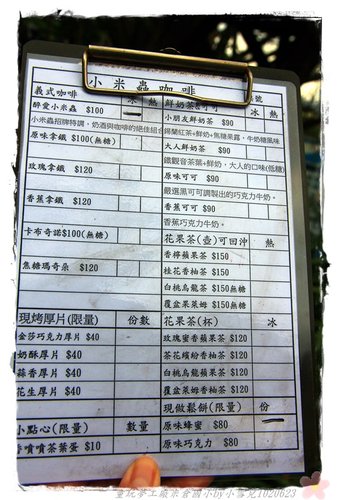 小米蟲咖啡
義式咖啡 冰 熱
醉愛小米蟲 $100
小米蟲招牌特調，奶酒與咖啡的絕佳組合
原味拿鐵 $100(無糖)
玫瑰拿鐵 $120
香蕉拿鐵 $120
卡布奇諾$100(無糖)
焦糖瑪奇朵 $120
現烤厚片(限量) 份數
金莎巧克力厚片 $40
奶酥厚片 $40
蒜香厚片 $40
花生厚片 $40
小點心(限量) 數量
香噴噴茶葉蛋 $10
鮮奶茶&可可 冰 熱
小朋友鮮奶茶 $90
錫蘭紅茶+鮮奶+焦糖果露，牛奶糖風味
大人鮮奶茶 $90
鐵觀音茶葉+鮮奶，大人的口味(低糖)
原味可可 $90
嚴選黑可可調製出的巧克力牛奶。
香蕉可可 $90
香蕉巧克力牛奶。
花果茶(壺)可回沖 熱
香檸蘋果茶 $150
桂花香柚茶 $150
白桃烏龍茶 $150無糖
覆盆果萊姆 $150無糖
花果茶(杯) 冰
玫瑰蜜香蘋果茶 $120
茶花繽紛香柚茶 $120
白桃烏龍蘋果茶 $120
覆盆萊姆香柚茶 $120
現做鬆餅(限量) 份
原味蜂蜜 $80
原味巧克力 $80
號
童玩夢工廠米倉國小by小雪兒1020623